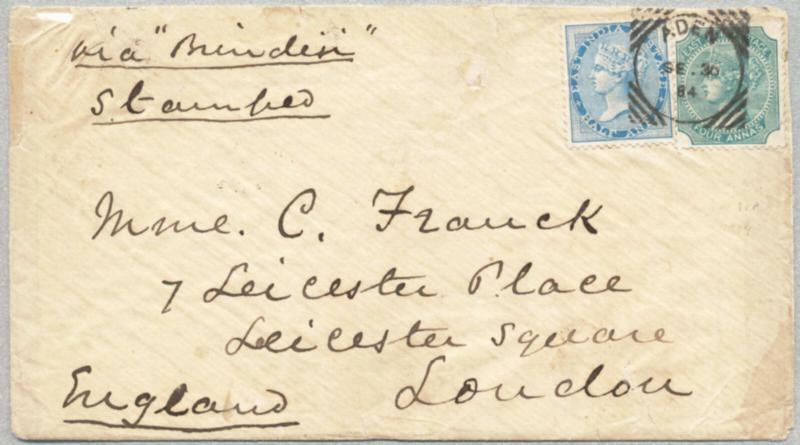 via "Brindisi"
Stamped
EAST INDIA
HALF ANNA
ADEN
SE. 30
84
EAST
FOUR ANNAS
Mme. C. Franck
7 Leicester Place
Leicester Square
London
England